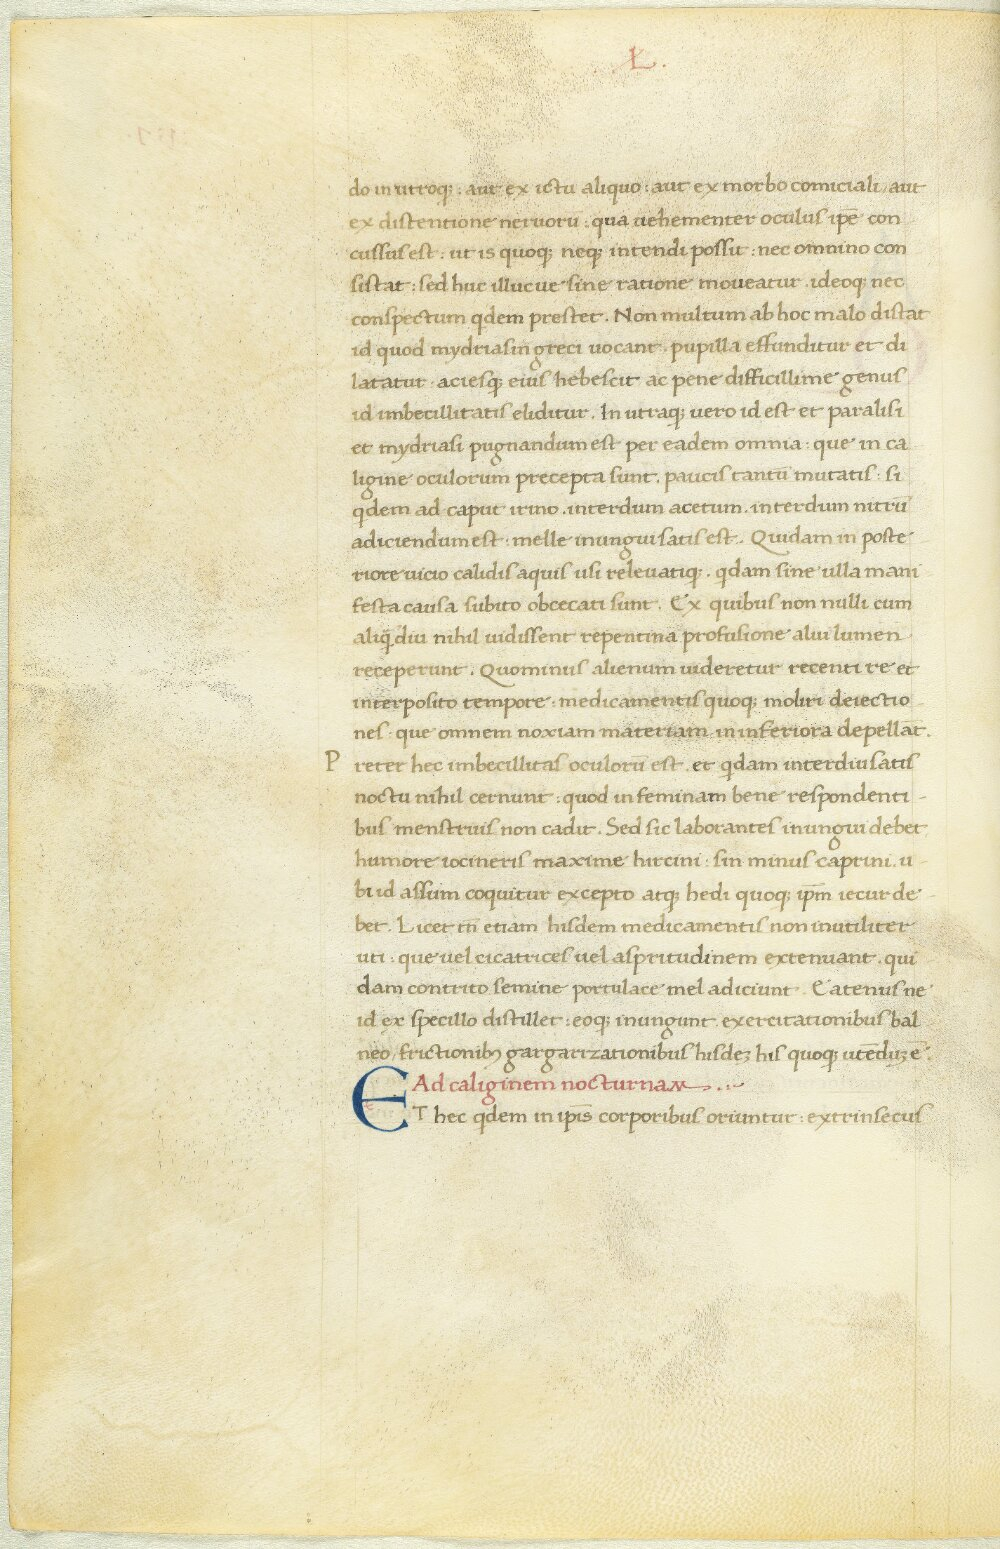 .L.
do in utroq; : aut ex ictu aliquo : aut ex morbo comiciali, aut
ex distentione neruorū : qua uehementer oculus ip̄e con
cussus est : ut is quoq; neq; intendi possit : nec omnino con
sistat : sed huc illucue sine ratione moueatur . ideoq; nec
conspectum qdem prestet . Non multum ab hoc malo distat
id quod mydriasin greci uocant . pupilla effunditur et di
latatur . aciesq; eius hebescit ac pene difficillime genus
id imbecillitatis eliditur . In utraq; uero id est et paralisi
et mydriasi pugnandum est per eadem omnia : que in ca
ligine oculorum precepta sunt . paucis tantū mutatis : si
qdem ad caput irino . interdum acetum . interdum nitrū
adiciendum est : melle inungui satis est . Quidam in poste
riore uicio calidis aquis usi releuatiq; . qdam sine ulla mani
festa causa subito obcecati sunt . Ex quibus non nulli cum
aliq̄diu nihil uidissent repentina profusione alui lumen
receperunt . Quominus alienum uideretur recenti re et
interposito tempore : medicamentis quoq; moliri deiectio
nes . que omnem noxiam materiam in inferiora depellāt .
P reter hec imbecillitas oculorū est . et qdam interdiu satis
noctu nihil cernunt : quod in feminam bene respondenti -
bus menstruis non cadit . Sed sic laborantes inungui debet
humore iocineris maxime hircini : sin minus caprini . u -
bi id assum coquitur excepto atq; hedi quoq; ip̄m iecur de -
bet . Licet tn̄ etiam hisdem medicamentis non inutiliter
uti : que uel cicatrices uel aspritudinem extenuant . qui
dam contrito semine portulace mel adiciunt . Eatenus ne
id ex specillo distillet : eoq; inungunt . exercitationibus bal
neo, frictionib; gargarizationibus hisdez his quoq; utēduz ē .
Ad caliginem nocturnam
ET hec qdem in ip̄is corporibus oriuntur : extrinsecus